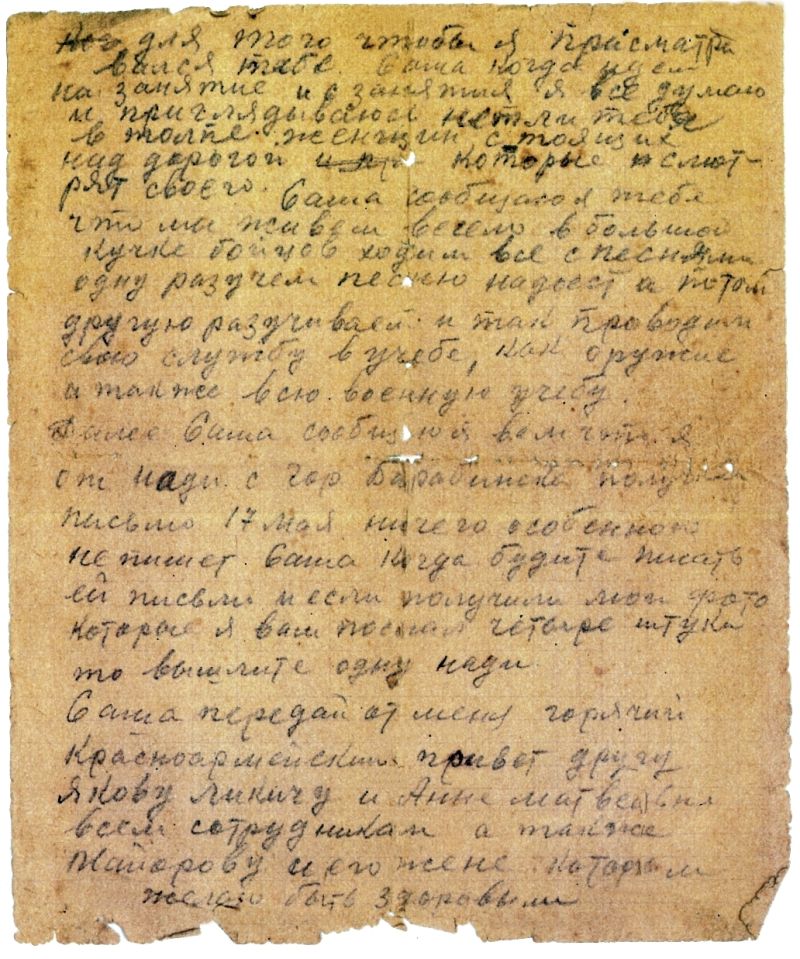 для того чтобы я присматри
вался тебе. Саша когда идем
на занятие и с занятия я все думаю
и приглядываюсь нет ли тебя
в толпе женщин стоящих
над дорогой которые смот-
рят своего. Саша сообщаю тебе
что мы живем весело в большой
кучке бойцов ходим все с песнями
одну разучем песню надоест а потом
другую разучиваем и так проводим
свою службу в учебе, как оружие
а также всю военную учебу.
Далее Саша сообщаю я вам что я
от нади с гор Барабинска получил
письмо 17 мая ничего особенного
не пишет Саша когда будите писать
ей письмо и если получили мои фото
которые я вам послал четыре штуки
то вышлите одну нади
Саша передай от меня горячий
красноармейский привет другу
Якову Микичу и Анне матвеевне
всем сотрудникам а также
Майорову и его жене которым
желаю быть здоровыми